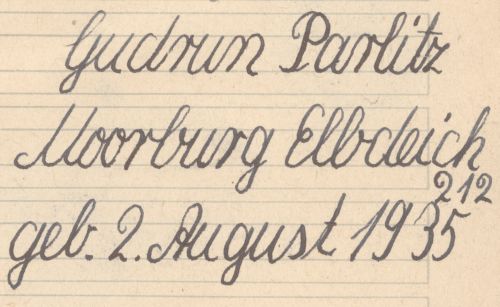 Gudrun Parlitz
Moorburg Elbdeich
212
geb. 2. August 1935